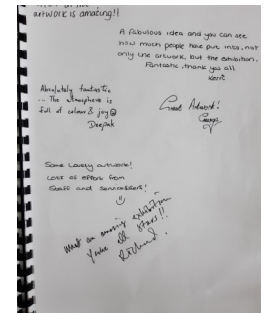 artwork is amazing!!
A fabulous idea and you can see
how much people have put into, not
only the artwork, but the exhibition.
Fantastic, thank you all
Kerri
Absolutely fantastic
... The atmosphere is
full of colour & joy ☺
Deepak
Great Artwork!
Some Lovely artwork!
Lots of effort from
Staff and serviceUsers!
☺
What an amazing exhibition
You're all stars!!
Richard.